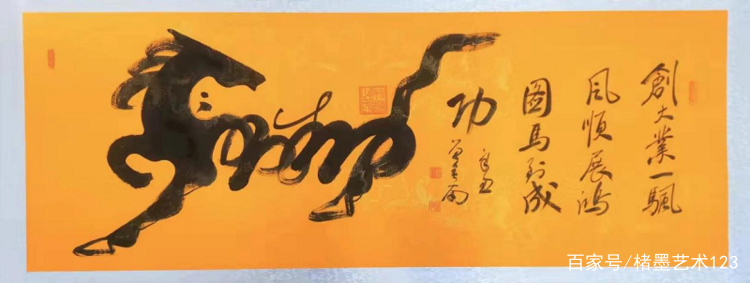 創大業一颿
風順展鴻
圖馬到成
功
辛丑
百家号/楮墨艺术123